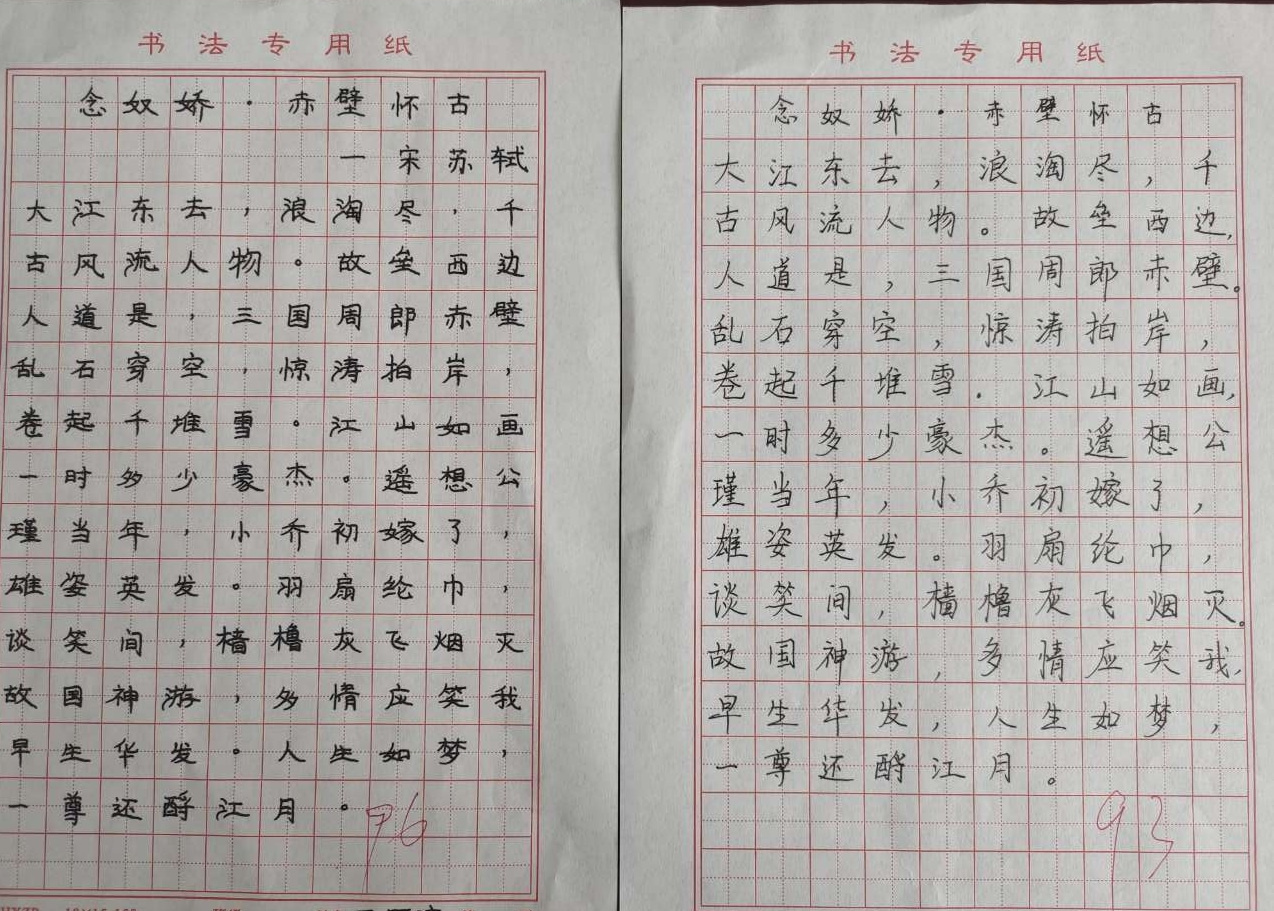 书法专用纸
念奴娇·赤壁怀古
一宋苏轼
大江东去，浪淘尽，千
古风流人物。故垒西边
人道是，三国周郎赤壁
乱石穿空，惊涛拍岸，
卷起千堆雪。江山如画
一时多少豪杰。遥想公
瑾当年，小乔初嫁了，
雄姿英发。羽扇纶巾，
谈笑间，樯橹灰飞烟灭
故国神游，多情应笑我
早生华发。人生如梦，
一尊还酹江月。
96
书法专用纸
念奴娇·赤壁怀古
大江东去，浪淘尽，千
古风流人物。故垒西边，
人道是，三国周郎赤壁。
乱石穿空，惊涛拍岸，
卷起千堆雪.江山如画，
一时多少豪杰。遥想公
瑾当年，小乔初嫁了，
雄姿英发。羽扇纶巾，
谈笑间，樯橹灰飞烟灭。
故国神游，多情应笑我，
早生华发，人生如梦，
一尊还酹江月。
93